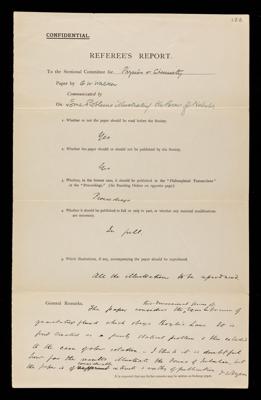 188
CONFIDENTIAL
REFEREE'S REPORT.
To the Sectional Committee for Physics & Chemistry
Paper by G W Walker
Communicated by
On Some Problems illustrating the Forms of Nebulae
1. Whether or not the paper should be read before the Society.
Yes
2. Whether the paper should or should not be published by the Society.
Yes
3. Whether, in the former case, it should be published in the "Philosophical Transactions"
or the "Proceedings." (See Standing Orders on opposite page.)
Proceedings
4. Whether it should be published in full or only in part, or whether any material modifications
are necessary.
In full.
5. Which illustrations, if any, accompanying the paper should be reproduced.
All the illustrations to be reproduced
General Remarks.
two-dimensional forms of
The paper considers the equilibrium of
gravitating fluid which obeys Boyle's Law. It is
first treated as a purely statical problem & then extended
to the case of slow rotation. I think it is doubtful
how far the results illustrate the forms of nebulae, but
the paper is of considerable interest & worthy of publication